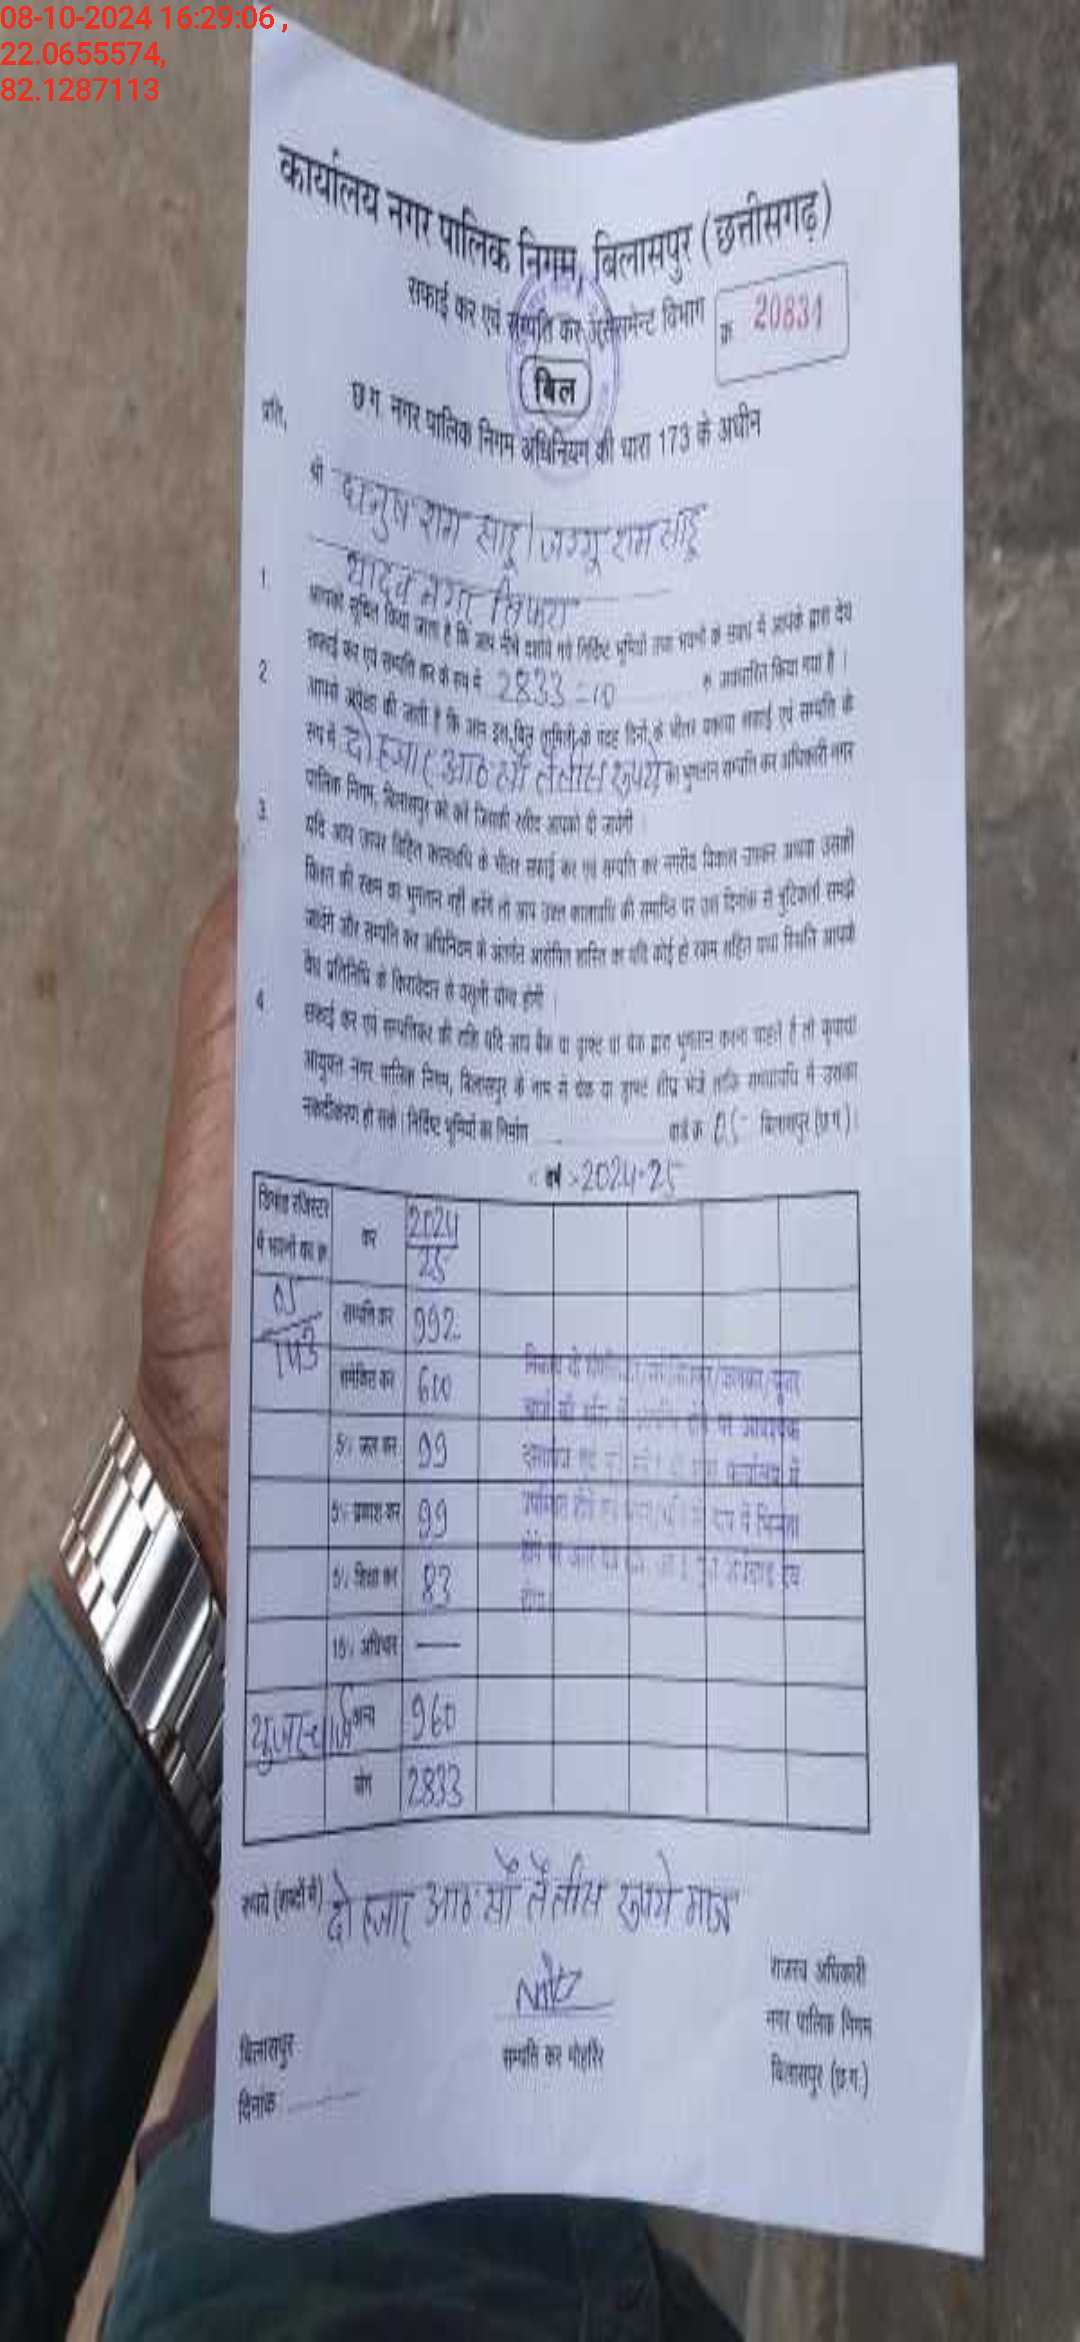 08-10-2024 16:29:06 ,
22.0655574,
82.1287113
कार्यालय नगर पालिक निगम, बिलासपुर (छत्तीसगढ़)
सफाई कर एवं सम्पति कर असेसमेन्ट विभाग
क्र 20831
बिल
छ ग. नगर पालिक निगम अधिनियम की धारा 173 के अधीन
प्रति,
श्री धनुष राम साहू / जग्गू राम साहू
यादव नगर तिफरा
1. आपको सूचित किया जाता है कि आप नीचे दर्शाये गये निर्दिष्ट भूमियों तथा भवनों के संबंध में आपके द्वारा देय
सफाई कर एवं सम्पति कर के रूप में 2833=10 रु अवधारित किया गया है ।
2 आपसे अपेक्षा की जाती है कि आप इस बिल तामिली के पंद्रह दिनों के भीतर बकाया सफाई एवं सम्पति के
रूप में दो हजार आठ सौ तैंतीस रूपये का भुगतान सम्पति कर अधिकारी नगर
पालिक निगम, बिलासपुर को करें जिसकी रसीद आपको दी जायेगी
3. यदि आप ऊपर विहित कालावधि के भीतर सफाई कर एवं सम्पति कर नगरीय विकास उपकर अथवा उसकी
किश्त की रकम का भुगतान नहीं करेंगे तो आप उक्त कालावधि की समाप्ति पर उस दिनांक से त्रुटिकर्ता समझे
जायेंगे और सम्पति कर अधिनियम के अंतर्गत आरोपित शास्ति का यदि कोई हो रकम सहित यथा स्थिति आपके
वैध प्रतिनिधि के किरायेदार से वसूली योग्य होगी ।
4 सफाई कर एवं सम्पतिकर की राशि यदि आप बैंक या ड्राफ्ट या चेक द्वारा भुगतान करना चाहते हैं तो कृपया
आयुक्त नगर पालिक निगम, बिलासपुर के नाम से चेक या ड्राफ्ट शीघ्र भेजें ताकि समयावधि में उसका
नकदीकरण हो सके । निर्दिष्ट भूमियों का निर्माण वार्ड क्र 05 बिलासपुर (छ ग.) ।
वर्ष 2024-25
डिमांड रजिस्टर
में भवनों का क्र कर 2024/25
05/143 सम्पत्ति कर 992
समेकित कर 600
5% जल कर 99
5% प्रकाश कर 99
5% शिक्षा कर 83
15% अधिभार —
यूजर चार्ज अन्य 960
योग 2833
रूपये (शब्दों में) दो हजार आठ सौ तैंतीस रूपये मात्र
राजस्व अधिकारी
सम्पत्ति कर मोहर्रिर
नगर पालिक निगम
बिलासपुर
बिलासपुर (छ ग.)
दिनांक